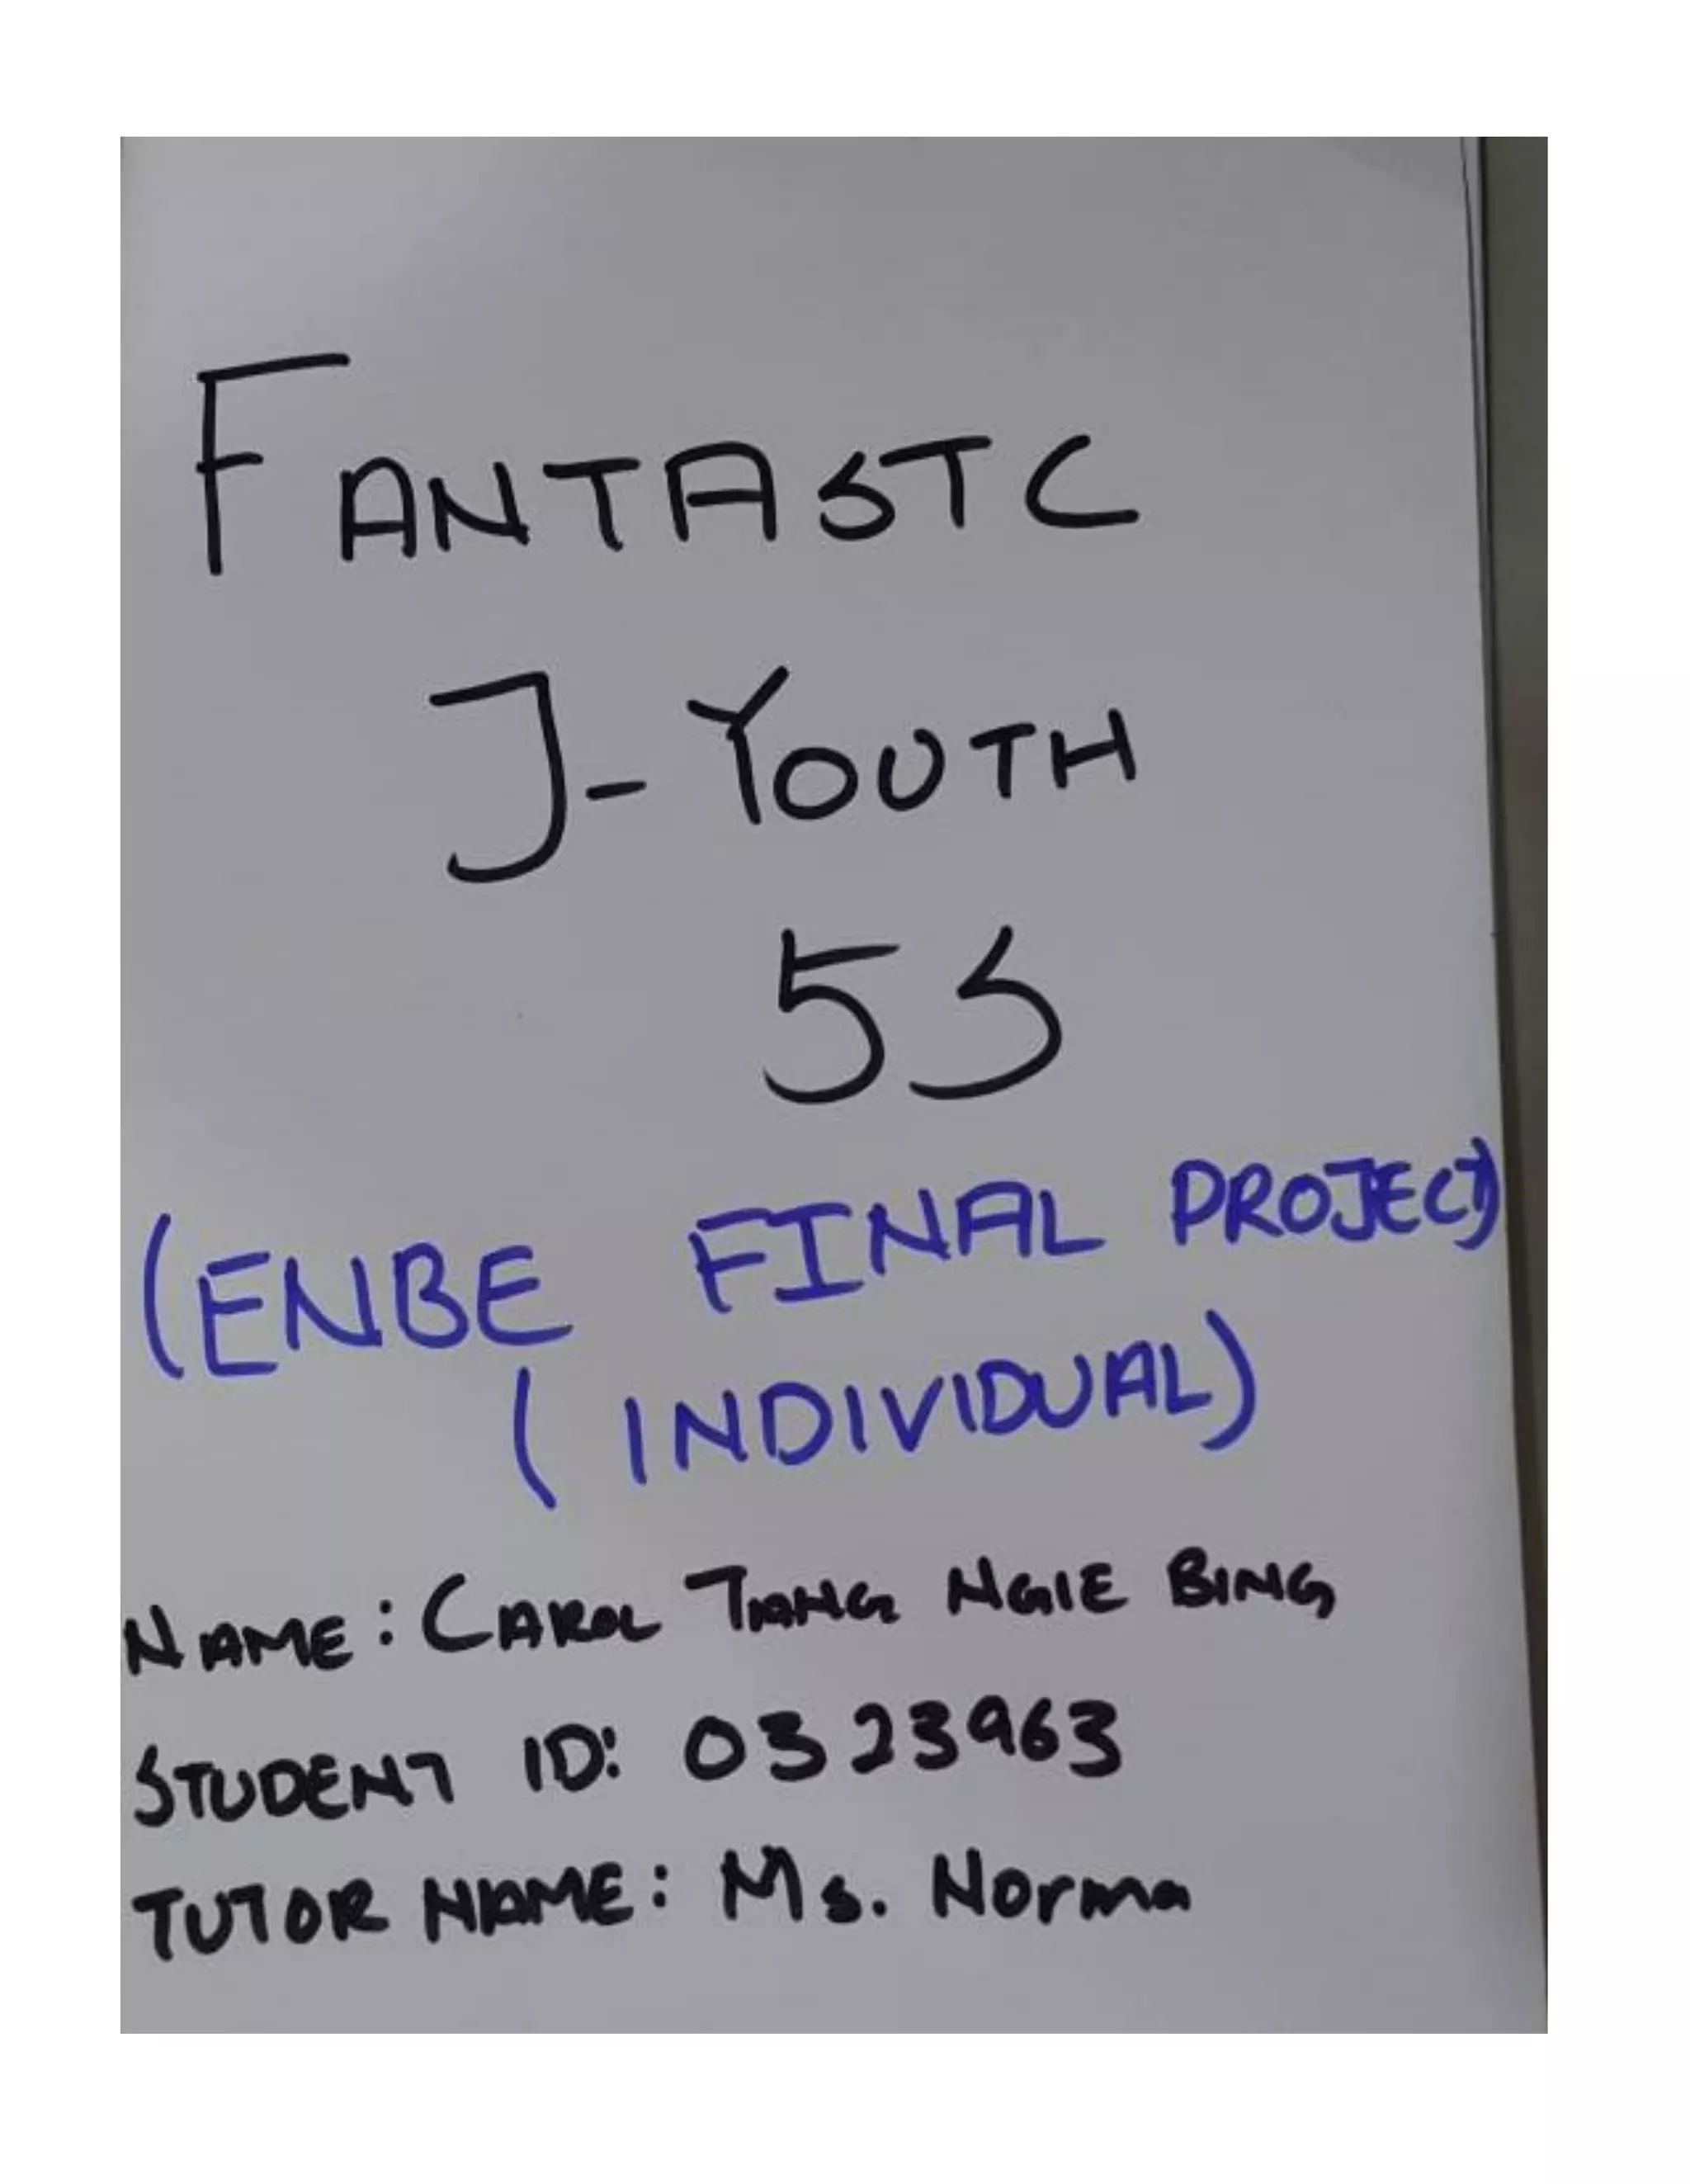 FANTASTC
J-YOUTH
5S
(ENBE FINAL PROJECT)
(INDIVIDUAL)
NAME: CAROL TIANG NGIE BING
STUDENT ID: 0323963
TUTOR NAME: Ms. Norma